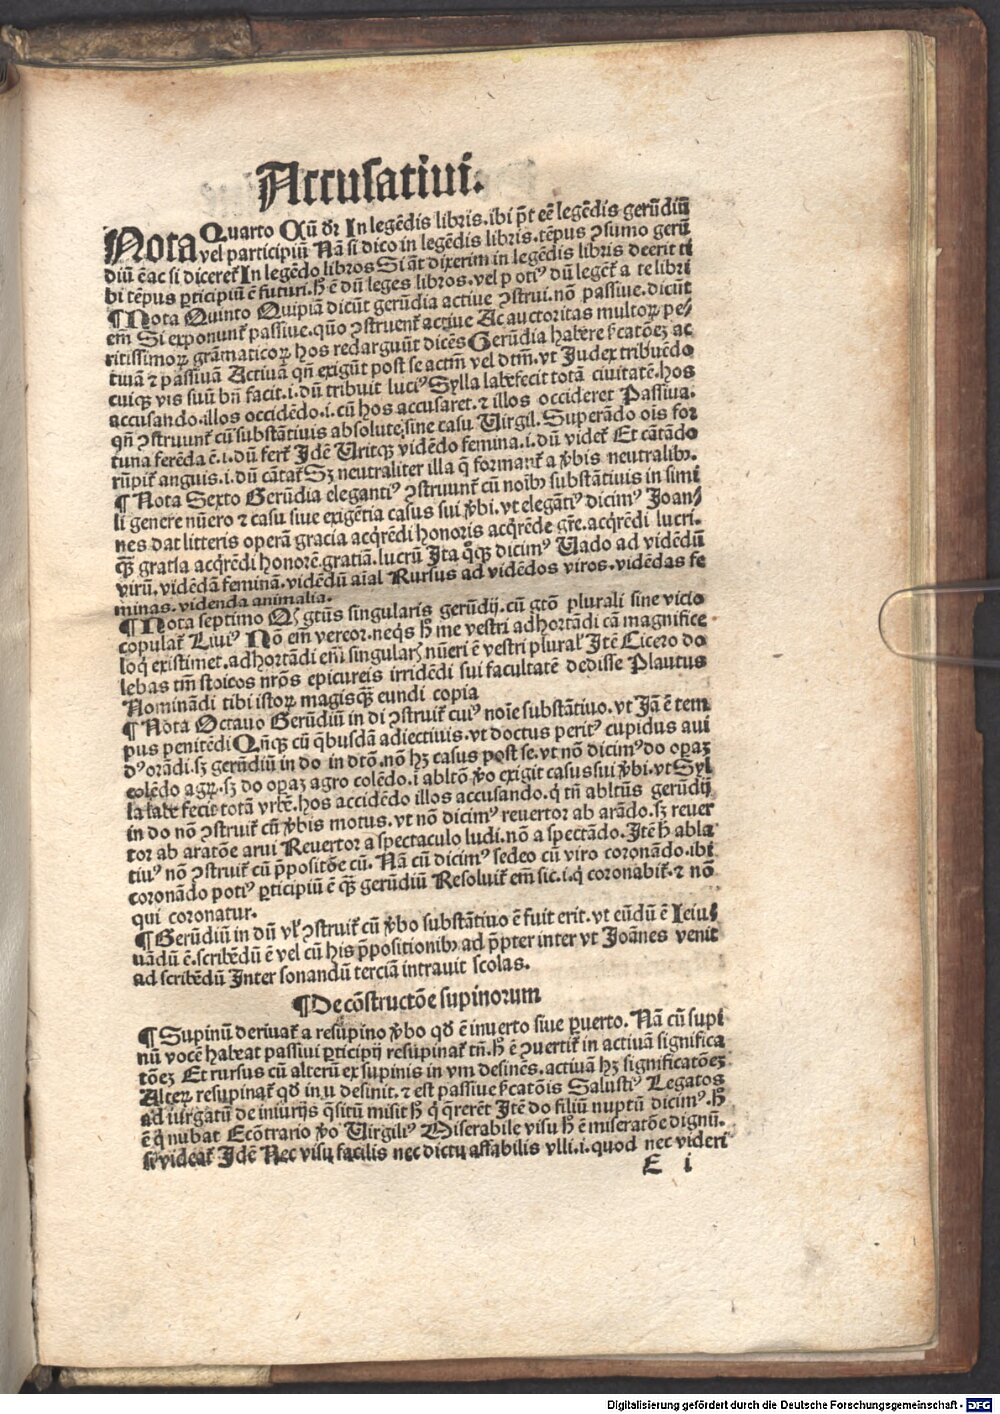 Accusatiui.
Nota Quarto Qū dr̄ In legēdis libris.ibi p̄t eē legēdis gerūdiū
vel participiū Nā si dico in legēdis libris.tēpus ꝯsumo gerū
diū ē ac si diceret᷑ In legēdo libros Si āt dixerim in legēdis libris deerit ti
bi tēpus ꝑticipiū ē futuri.h̄ ē dū leges libros.vel potiꝰ dū legēt᷑ a te libri
¶Nota Quinto Quipiā dicūt gerūdia actiue ꝯstrui.nō passiue.dicūt
em̄ Si exponunt᷑ passiue.quō ꝯstruent᷑ actiue Ac auctoritas multoꝝ pe⸗
ritissimoꝝ grāmaticoꝝ hos redarguūt dicēs Gerūdia habere s̄catōeꝫ ac
tiuā ⁊ passiuā Actiuā qn̄ exigūt post se actm̄ vel dtm̄.vt Judex tribuēdo
cuiqꝫ vis suū bn̄ facit.i.dū tribuit luciꝰ Sylla labefecit totā ciuitatē.hos
accusando.illos occidēdo.i.cū hos accusaret.⁊ illos occideret Passiua.
qn̄ ꝯstruunt᷑ cū substātiuis absolute,sine casu Uirgil.Superādo ois for
tuna ferēda ē.i.dū fert᷑ Jdē Uritqꝫ vidēdo femina.i.dū videt᷑ Et cātādo
rūpit᷑ anguis.i.dū cātat᷑ Sꝫ neutraliter illa q̄ formant᷑ a v̄bis neutralibꝫ.
¶Nota Sexto Gerūdia elegantiꝰ ꝯstruunt᷑ cū noībꝫ substātiuis in simi
li genere nūero ⁊ casu siue exigētia casus sui v̄bi.vt elegātiꝰ dicimꝰ Joan⸗
nes dat litteris operā gracia acq̄rēdi honoris acq̄rēde gr̄e.acq̄rēdi lucri.
qꝫ gratia acq̄rēdi honorē.gratiā.lucrū Jta qͦꝫ dicimꝰ Uado ad vidēdū
virū.vidēdā feminā.vidēdū aīal Rursus ad vidēdos viros.vidēdas fe
minas.videnda animalia.
¶Nota septimo Qꝫ gtūs singularis gerūdij.cū gtō plurali sine vicio
copulat᷑ Liuiꝰ Nō em̄ vereor.neq̄s h̄ me vestri adhortādi cā magnifice
loq̄ existimet.adhortādi em̄ singularꝭ nūeri ē vestri pluralꝭ Jtē Cicero do
lebas tm̄ stoicos nr̄os epicureis irridēdi sui facultatē dedisse Plautus
Nominādi tibi istoꝝ magisqꝫ eundi copia
¶Nota Octauo Gerūdiū in di ꝯstruit᷑ cuiꝰ noīe substātiuo.vt Jā ē tem
pus penitēdi Qn̄qꝫ cū q̄busdā adiectiuis.vt doctus peritꝰ cupidus aui
dꝰ orādi.sꝫ gerūdiū in do in dtō.nō hꝫ casus post se.vt nō dicimꝰ do opaꝫ
colēdo agꝝ.sꝫ do opaꝫ agro colēdo.i abltō v̄o exigit casus sui v̄bi.vt Syl
la labe fecit totā vrbē.hos accidēdo illos accusando.q̄ tn̄ abltūs gerūdij
in do nō ꝯstruit᷑ cū v̄bis motus.vt nō dicimꝰ reuertor ab arādo.sꝫ reuer
tor ab aratōe arui Reuertor a spectaculo ludi.nō a spectādo.Jtē h̄ abla
tiuꝰ nō ꝯstruit᷑ cū p̄positōe cū.Nā cū dicimꝰ sedeo cū viro coronādo.ibi
coronādo potiꝰ ꝑticipiū ē qꝫ gerūdiū Resoluit᷑ em̄ sic.i.q̄ coronabit᷑.⁊ nō
qui coronatur.
¶Gerūdiū in dū vl̓ ꝯstruit᷑ cū v̄bo substātiuo ē fuit erit.vt eūdū ē Ieiu⸗
uādū ē.scribēdū ē vel cū his p̄positionibꝫ ad p̄pter inter vt Joānes venit
ad scribēdū Inter sonandū terciā intrauit scolas.
¶De cōstructōe supinorum
¶Supinū deriuat᷑ a resupino v̄bo qd̄ ē inuerto siue ꝑuerto.Nā cū supi
nū vocē habeat passiui ꝑticipij resupinat᷑ tn̄.h̄ ē ꝯuertit᷑ in actiuā significa
tōeꝫ Et rursus cū alterū ex supinis in vm desinēs.actiuā hꝫ significatōeꝫ
Alterꝝ resupinat᷑ qd̄ in u desinit.⁊ est passiue s̄catōis Salustiꝰ Legatos
ad iurgatū de iniurijs q̄sitū misit h̄ q̄ q̄rerēt Jtē do filiū nuptū dicimꝰ.h̄
ē q̄ nubat Ecōtrario v̄o Uirgiliꝰ Miserabile visu h̄ ē miseratōe dignū.
si videat᷑ Jdē Nec visu facilis nec dictu affabilis vlli.i.quod nec videri
E i
Digitalisierung gefördert durch die Deutsche Forschungsgemeinschaft - DFG